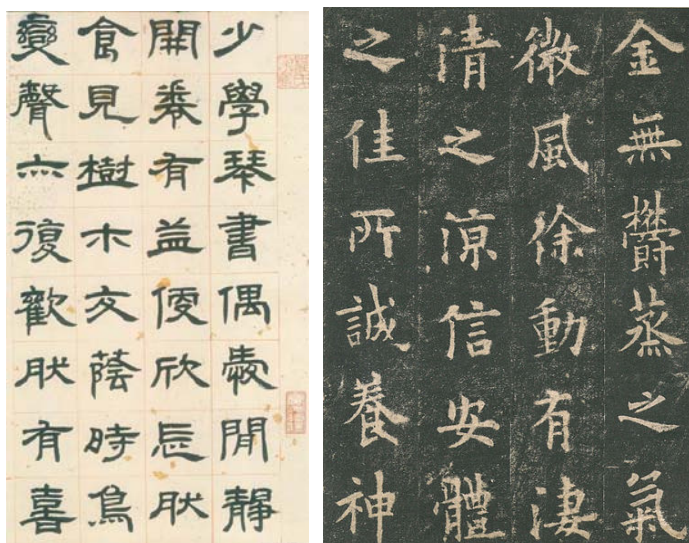 少學琴書偶愛閒靜
開卷有益便欣忘肰
食見樹木交蔭時鳥
變聲亦復歡肰有喜
金無欝蒸之氣
微風徐動有淒
清之涼信安體
之佳所誠養神